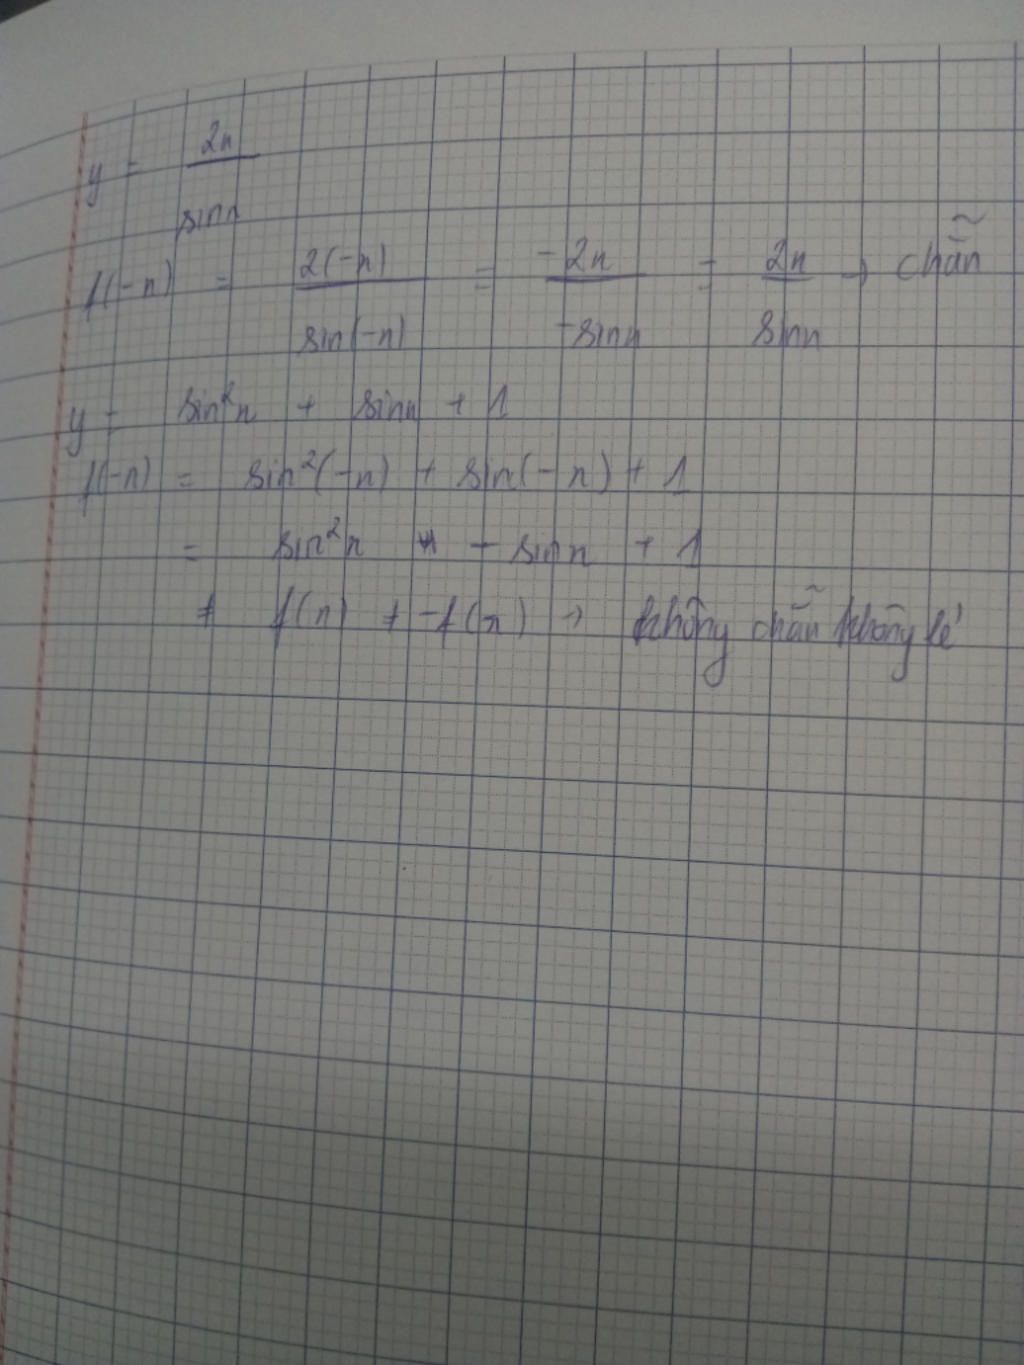 y = 2x / sinx
f(-x) = 2(-x) / sin(-x) = -2x / -sinx = 2x / sinx → chẵn
y = sin²x + sinx + 1
f(-x) = sin²(-x) + sin(-x) + 1
= sin²x - sinx + 1
≠ f(x) ≠ -f(x) → không chẵn không lẻ